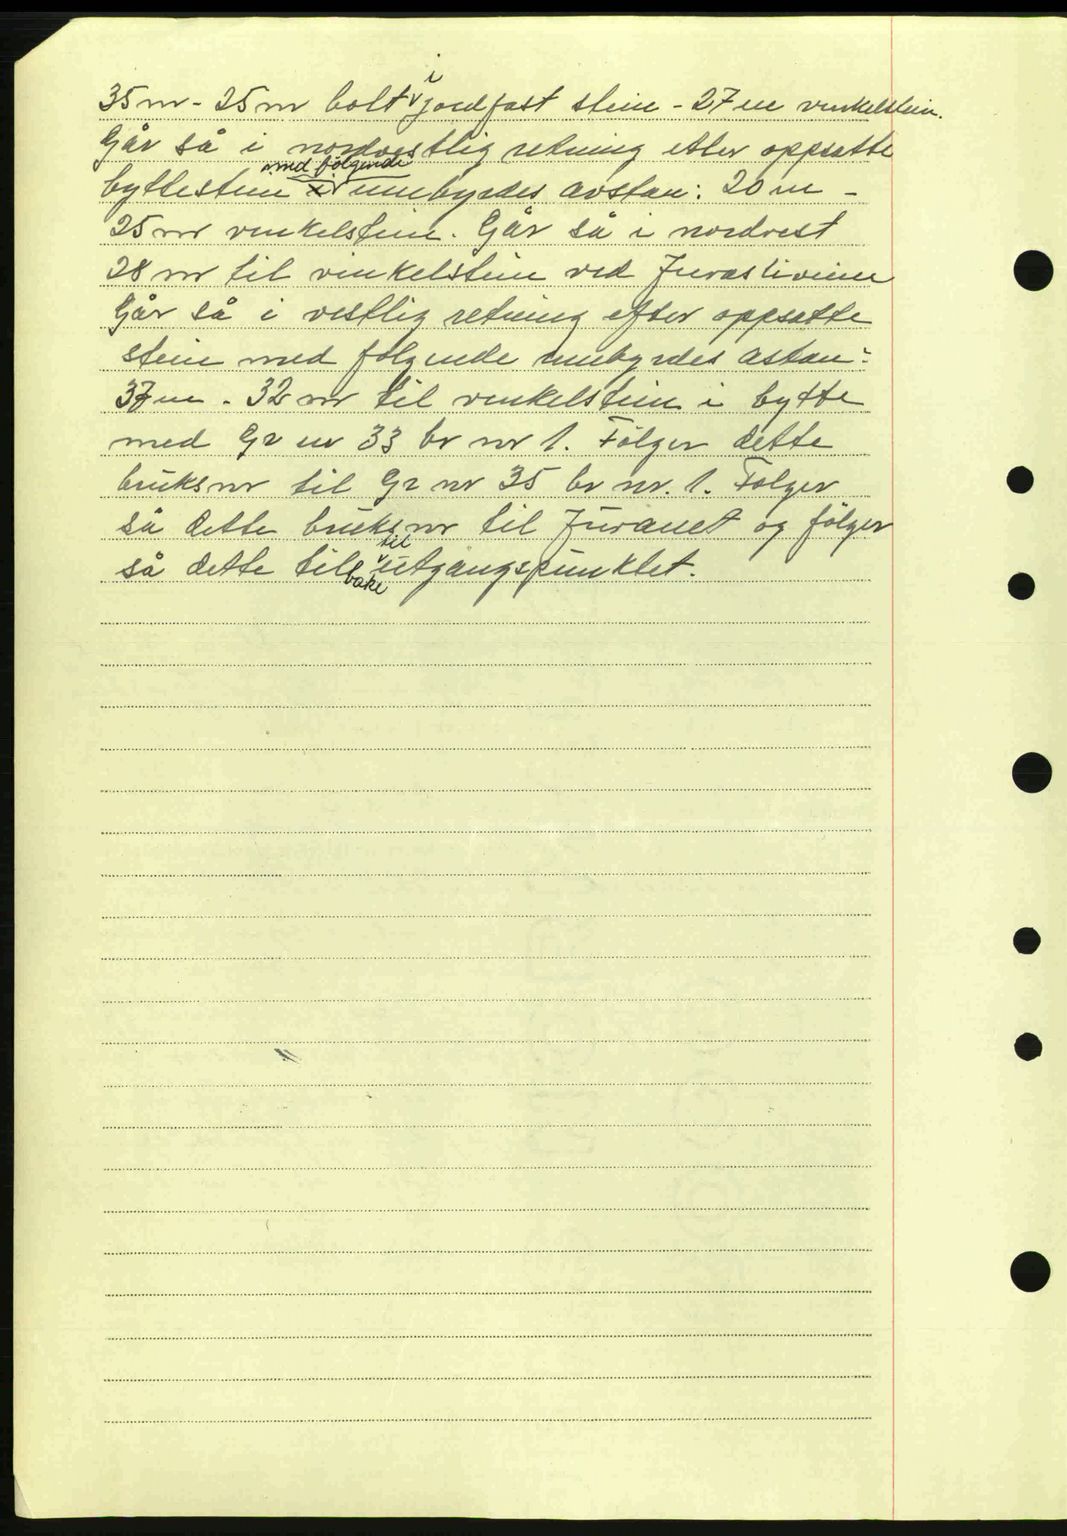 35 m - 25 m bolt i jordfast stein - 27 m vinkelstein.
Går så i nordvestlig retning etter oppsatte
byttestein med følgende innbyrdes avstan: 20 m -
25 m vinkelstein. Går så i nordvest
28 m til vinkelstein ved
Går så i vestlig retning efter oppsatte
stein med følgende innbyrdes astan:
37 m - 32 m til vinkelstein i bytte
med Gr nr 33 br nr 1. Følger dette
bruksnr til Gr nr 35 br nr. 1. Følger
så dette bruksnr til Juvanet og følger
så dette tilbake til utgangspunktet.